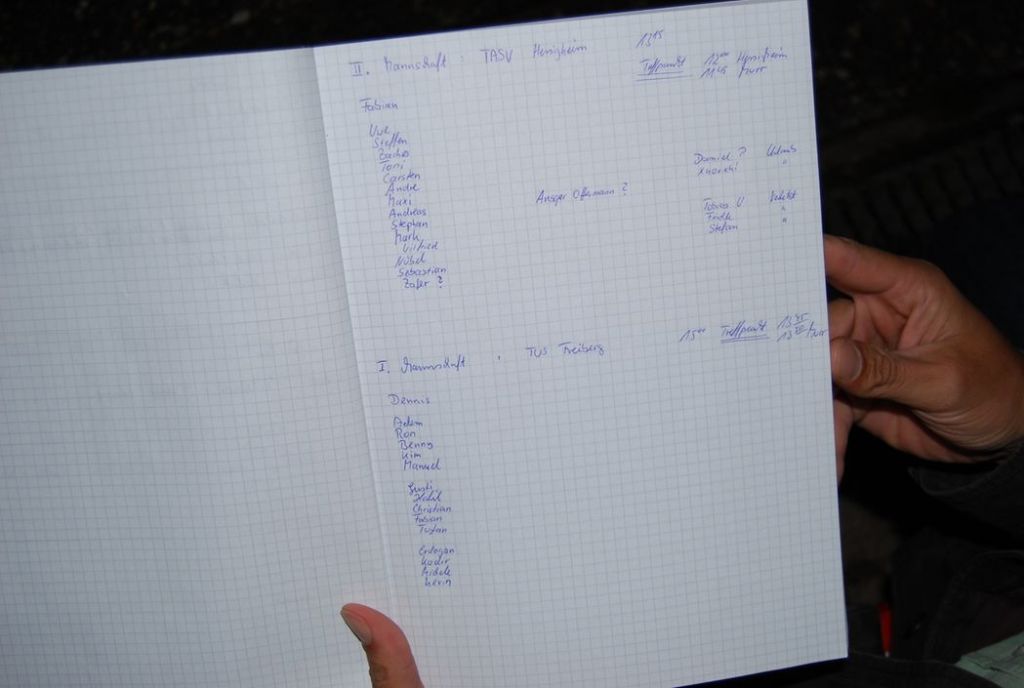 II. Mannschaft : TASV Hessigheim 13 15
Treffpunkt 12 00 Hessigheim
11 45 Murr
Fabian
Uwe
Steffen
Toni
Carsten
Andre
Maxi
Andreas
Stephan
Mark
Wilfried
Nübel
Sebastian
Zafer ?
Ansgar Offermann ?
Daniel ? Urlaub
"
Tobias U Verletzt
"
Stefan "
I. Mannschaft : TUS Freiberg 15 00 Treffpunkt 13 45
13 30 Murr
Dennis
Adem
Ron
Benny
Kim
Manuel
Gusti
Halil
Christian
Fabian
Erdogan
Kadir
Kevin